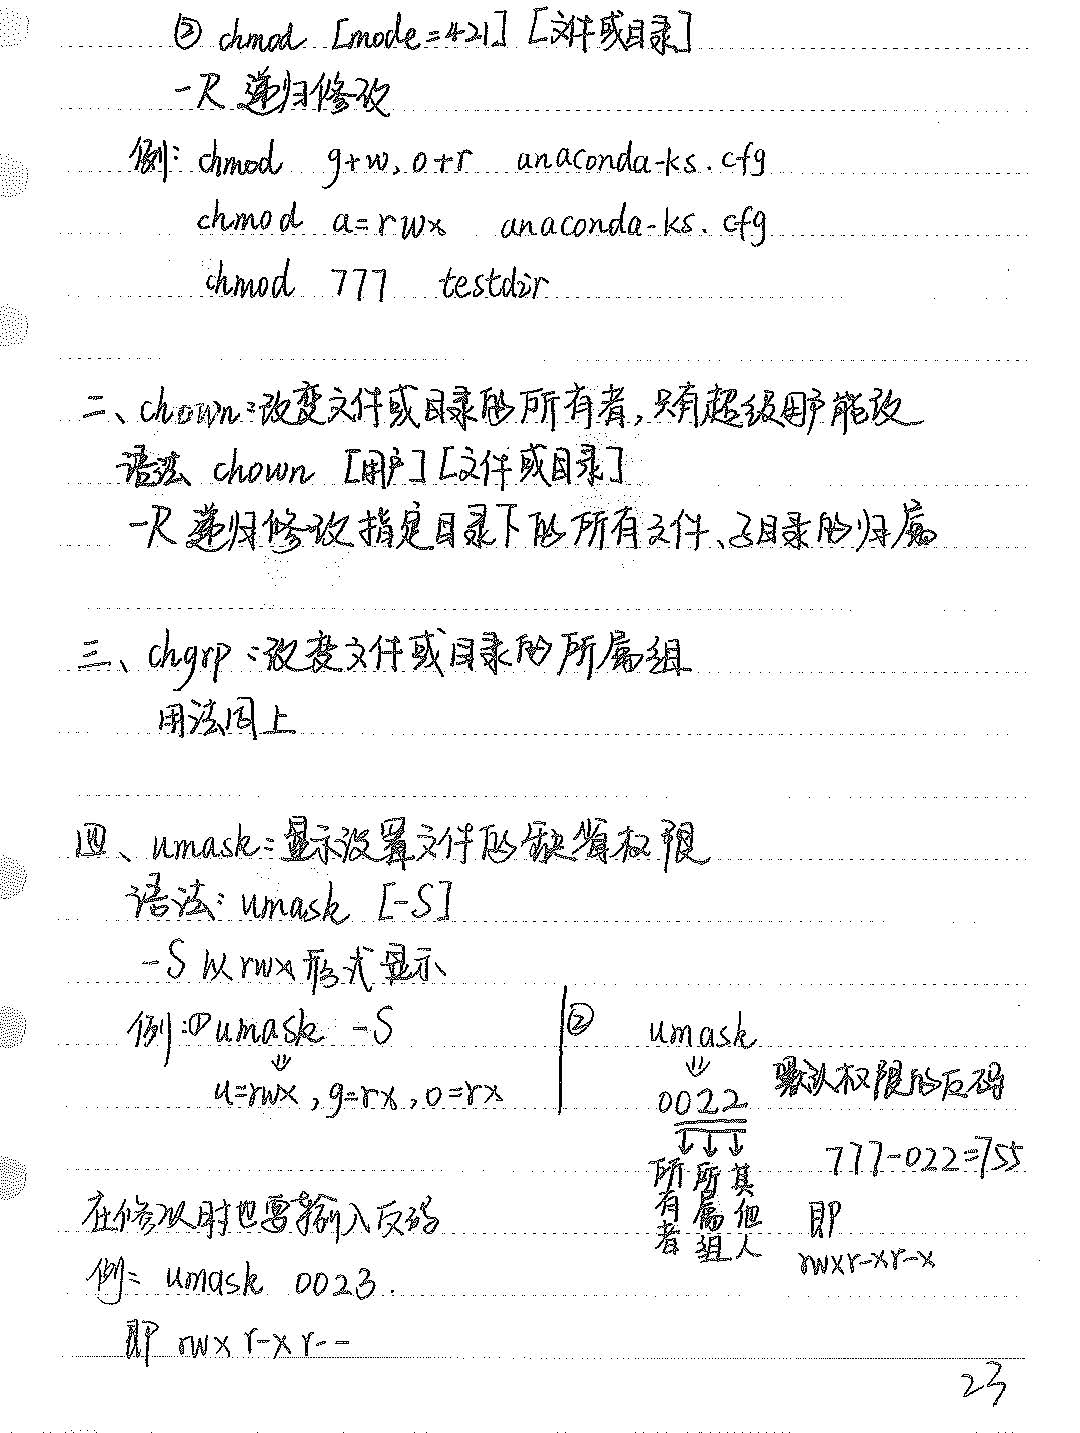 ② chmod [mode=421] [文件或目录]
-R 递归修改
例: chmod g+w,o+r anaconda-ks.cfg
chmod a=rwx anaconda-ks.cfg
chmod 777 testdir
二、chown:改变文件或目录的所有者,只有超级用户能改
语法 chown [用户][文件或目录]
-R 递归修改指定目录下的所有文件、子目录的归属
三、chgrp:改变文件或目录的所属组
用法同上
四、umask:显示设置文件的缺省权限
语法: umask [-S]
-S 以rwx形式显示
例:① umask -S
⇓
u=rwx,g=rx,o=rx
② umask
⇓
0022 默认权限的反码
↓↓↓
所有者 所属组 其他人
777-022=755
即
rwxr-xr-x
在修改时也需要输入反码
例: umask 0023.
即 rwxr-xr--
23